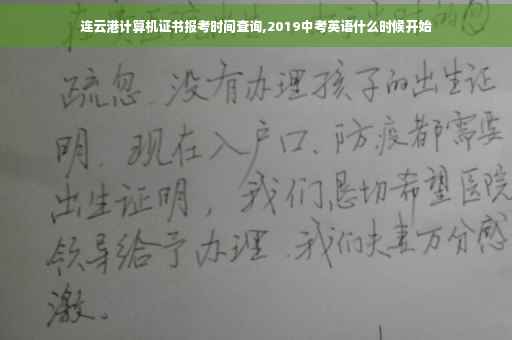 连云港计算机证书报考时间查询,2019中考英语什么时候开始
疏忽、没有办理孩子的出生证
明、现在入户口、防疫都需要
出生证明，我们恳切希望医院
领导给予办理、我们夫妻万分感
激。